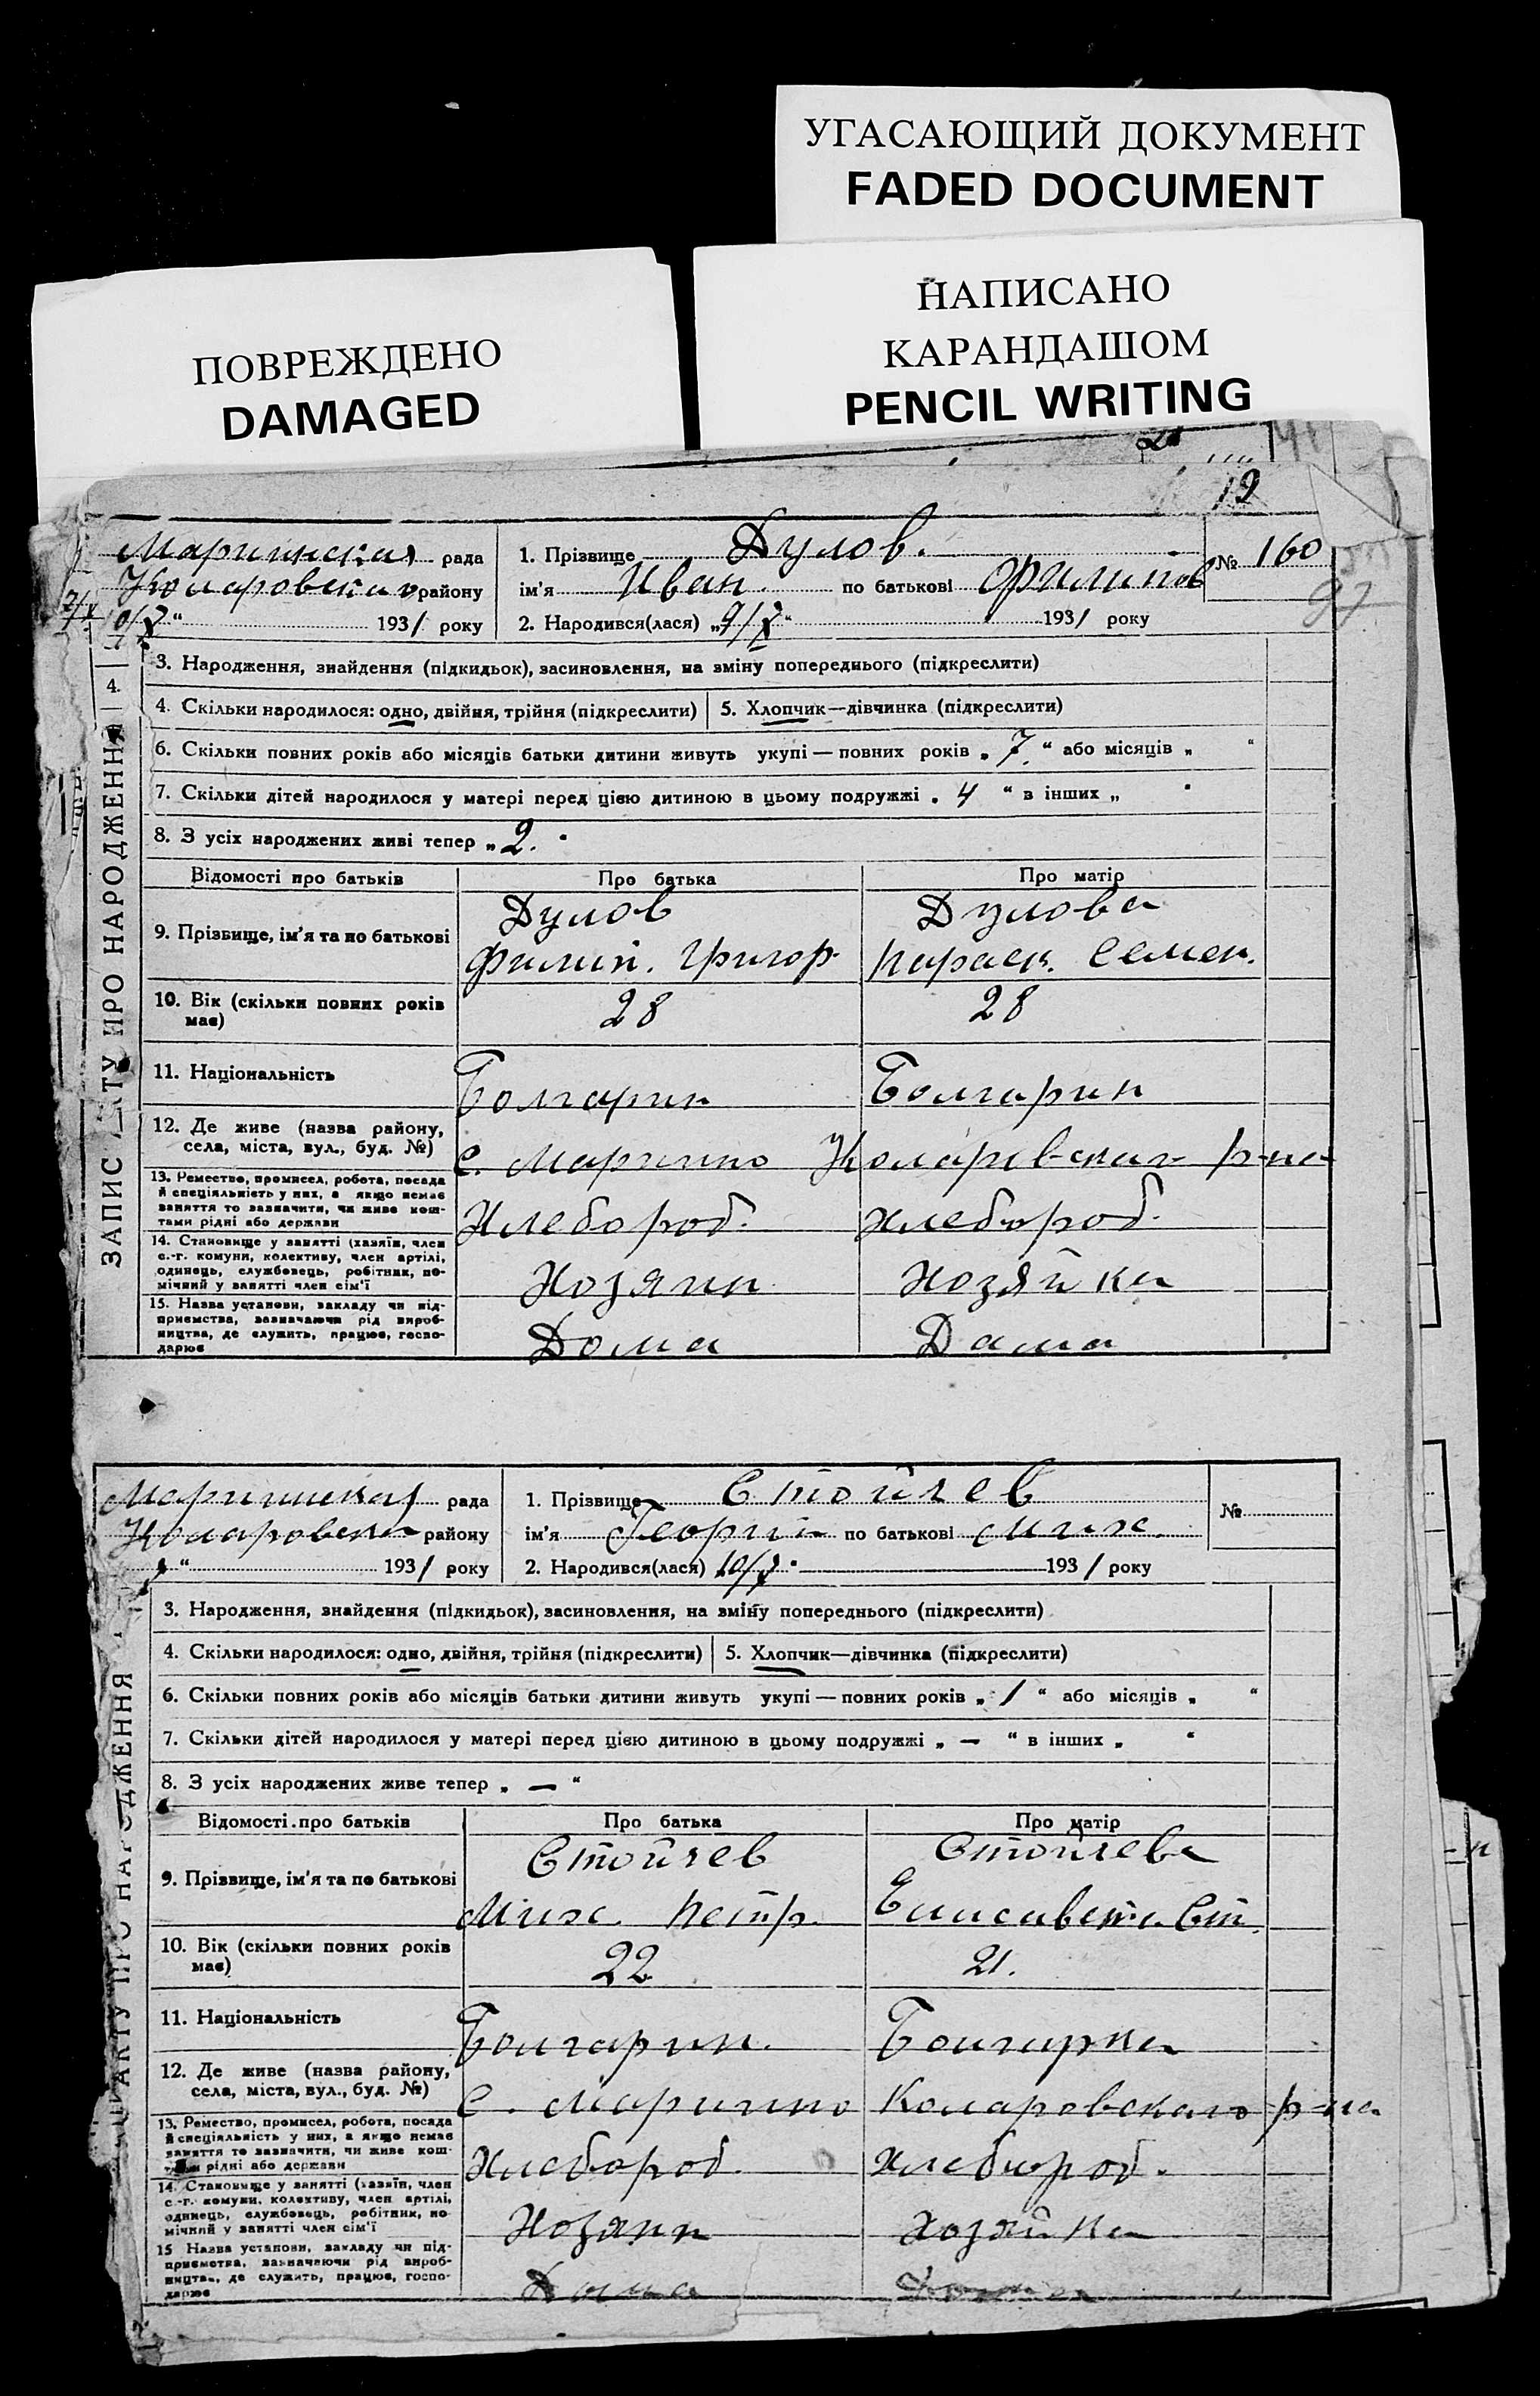 УГАСАЮЩИЙ ДОКУМЕНТ
FADED DOCUMENT
НАПИСАНО
КАРАНДАШОМ
PENCIL WRITING
ПОВРЕЖДЕНО
DAMAGED
12
Мариинская рада
Коларовскаго району
10/X “ 1931 року
1. Прізвище Дулов.
ім'я Иван по батькові Филипов
№ 160
97
2. Народився(лася) „9/X“ 1931 року
ЗАПИС АКТУ ПРО НАРОДЖЕННЯ
4.
3. Народження, знайдення (підкидьок), засиновлення, на зміну попереднього (підкреслити)
4. Скільки народилося: одно, двійня, трійня (підкреслити) 5. Хлопчик—дівчинка (підкреслити)
6. Скільки повних років або місяців батьки дитини живуть укупі — повних років „ 7. “ або місяців „ “
7. Скільки дітей народилося у матері перед цією дитиною в цьому подружжі „ 4 “ в інших „ “
8. З усіх народжених живі тепер „ 2. “
Відомості про батьків Про батька Про матір
9. Прізвище, ім'я та по батькові
Дулов Дулова
Филип. Григор. Параск. Семен.
10. Вік (скільки повних років має) 28 28
11. Національність Болгарин Болгарин
12. Де живе (назва району, села, міста, вул., буд. №)
с. Мариино Коларовскаго р-на
13. Ремество, промисел, робота, посада й спеціяльність у них, а якщо немає заняття то зазначити, чи живе коштами рідні або держави
Хлебород. Хлебород.
14. Становище у занятті (хазяїн, член с.-г. комуни, колективу, член артілі, одинець, службовець, робітник, помічний у занятті член сім'ї
Хозяин Хозяйка
15. Назва установи, закладу чи підприємства, зазначаючи рід виробництва, де служить, працює, господарює
Дома Дама
Мариинская рада
Коларовскаго району
“ 1931 року
1. Прізвище Стойчев
ім'я Георгий по батькові Мих.
№
2. Народився(лася) 10/X “ 1931 року
АКТУ ПРО НАРОДЖЕННЯ
3. Народження, знайдення (підкидьок), засиновлення, на зміну попереднього (підкреслити)
4. Скільки народилося: одно, двійня, трійня (підкреслити) 5. Хлопчик—дівчинка (підкреслити)
6. Скільки повних років або місяців батьки дитини живуть укупі — повних років „ 1 “ або місяців „ “
7. Скільки дітей народилося у матері перед цією дитиною в цьому подружжі „ — “ в інших „ “
8. З усіх народжених живе тепер „ — “
Відомості про батьків Про батька Про матір
9. Прізвище, ім'я та по батькові
Стойчев Стойчева
Мих. Петр. Елисавета Ст.
10. Вік (скільки повних років має) 22 21.
11. Національність Болгарин. Болгарка
12. Де живе (назва району, села, міста, вул., буд. №)
с. Мариино Коларовскаго р-на
13. Ремество, промисел, робота, посада й спеціяльність у них, а якщо немає заняття то зазначити, чи живе коштами рідні або держави
Хлебород. Хлебород.
14. Становище у занятті (хазяїн, член с.-г. комуни, колективу, член артілі, одинець, службовець, робітник, помічний у занятті член сім'ї
Хозяин Хозяйка
15 Назва установи, закладу чи підприємства, зазначаючи рід виробництва, де служить, працює, господарює
Дома Дома